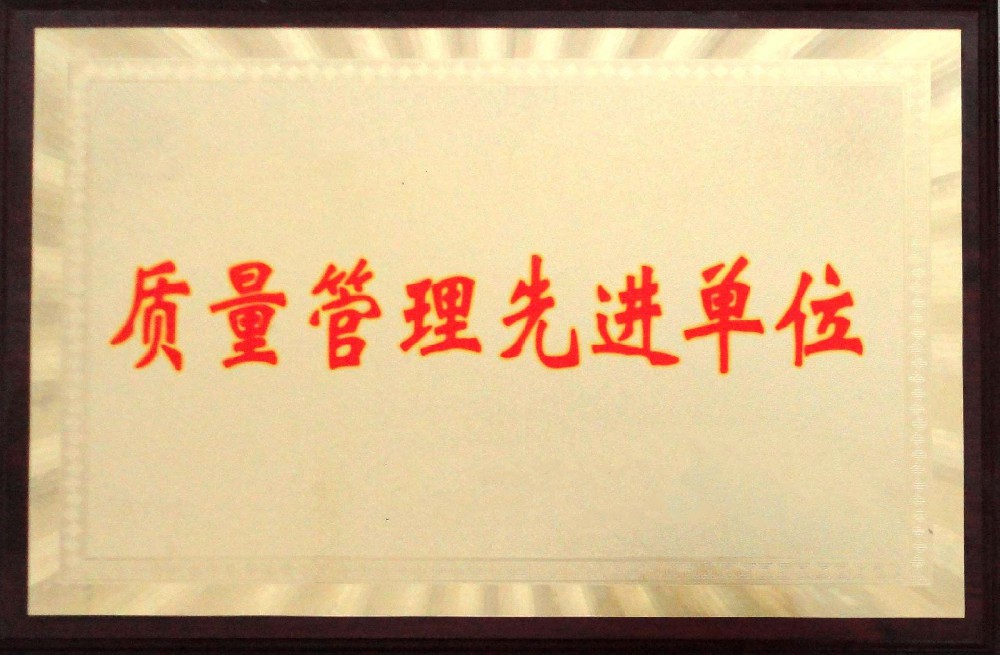 质量管理先进单位